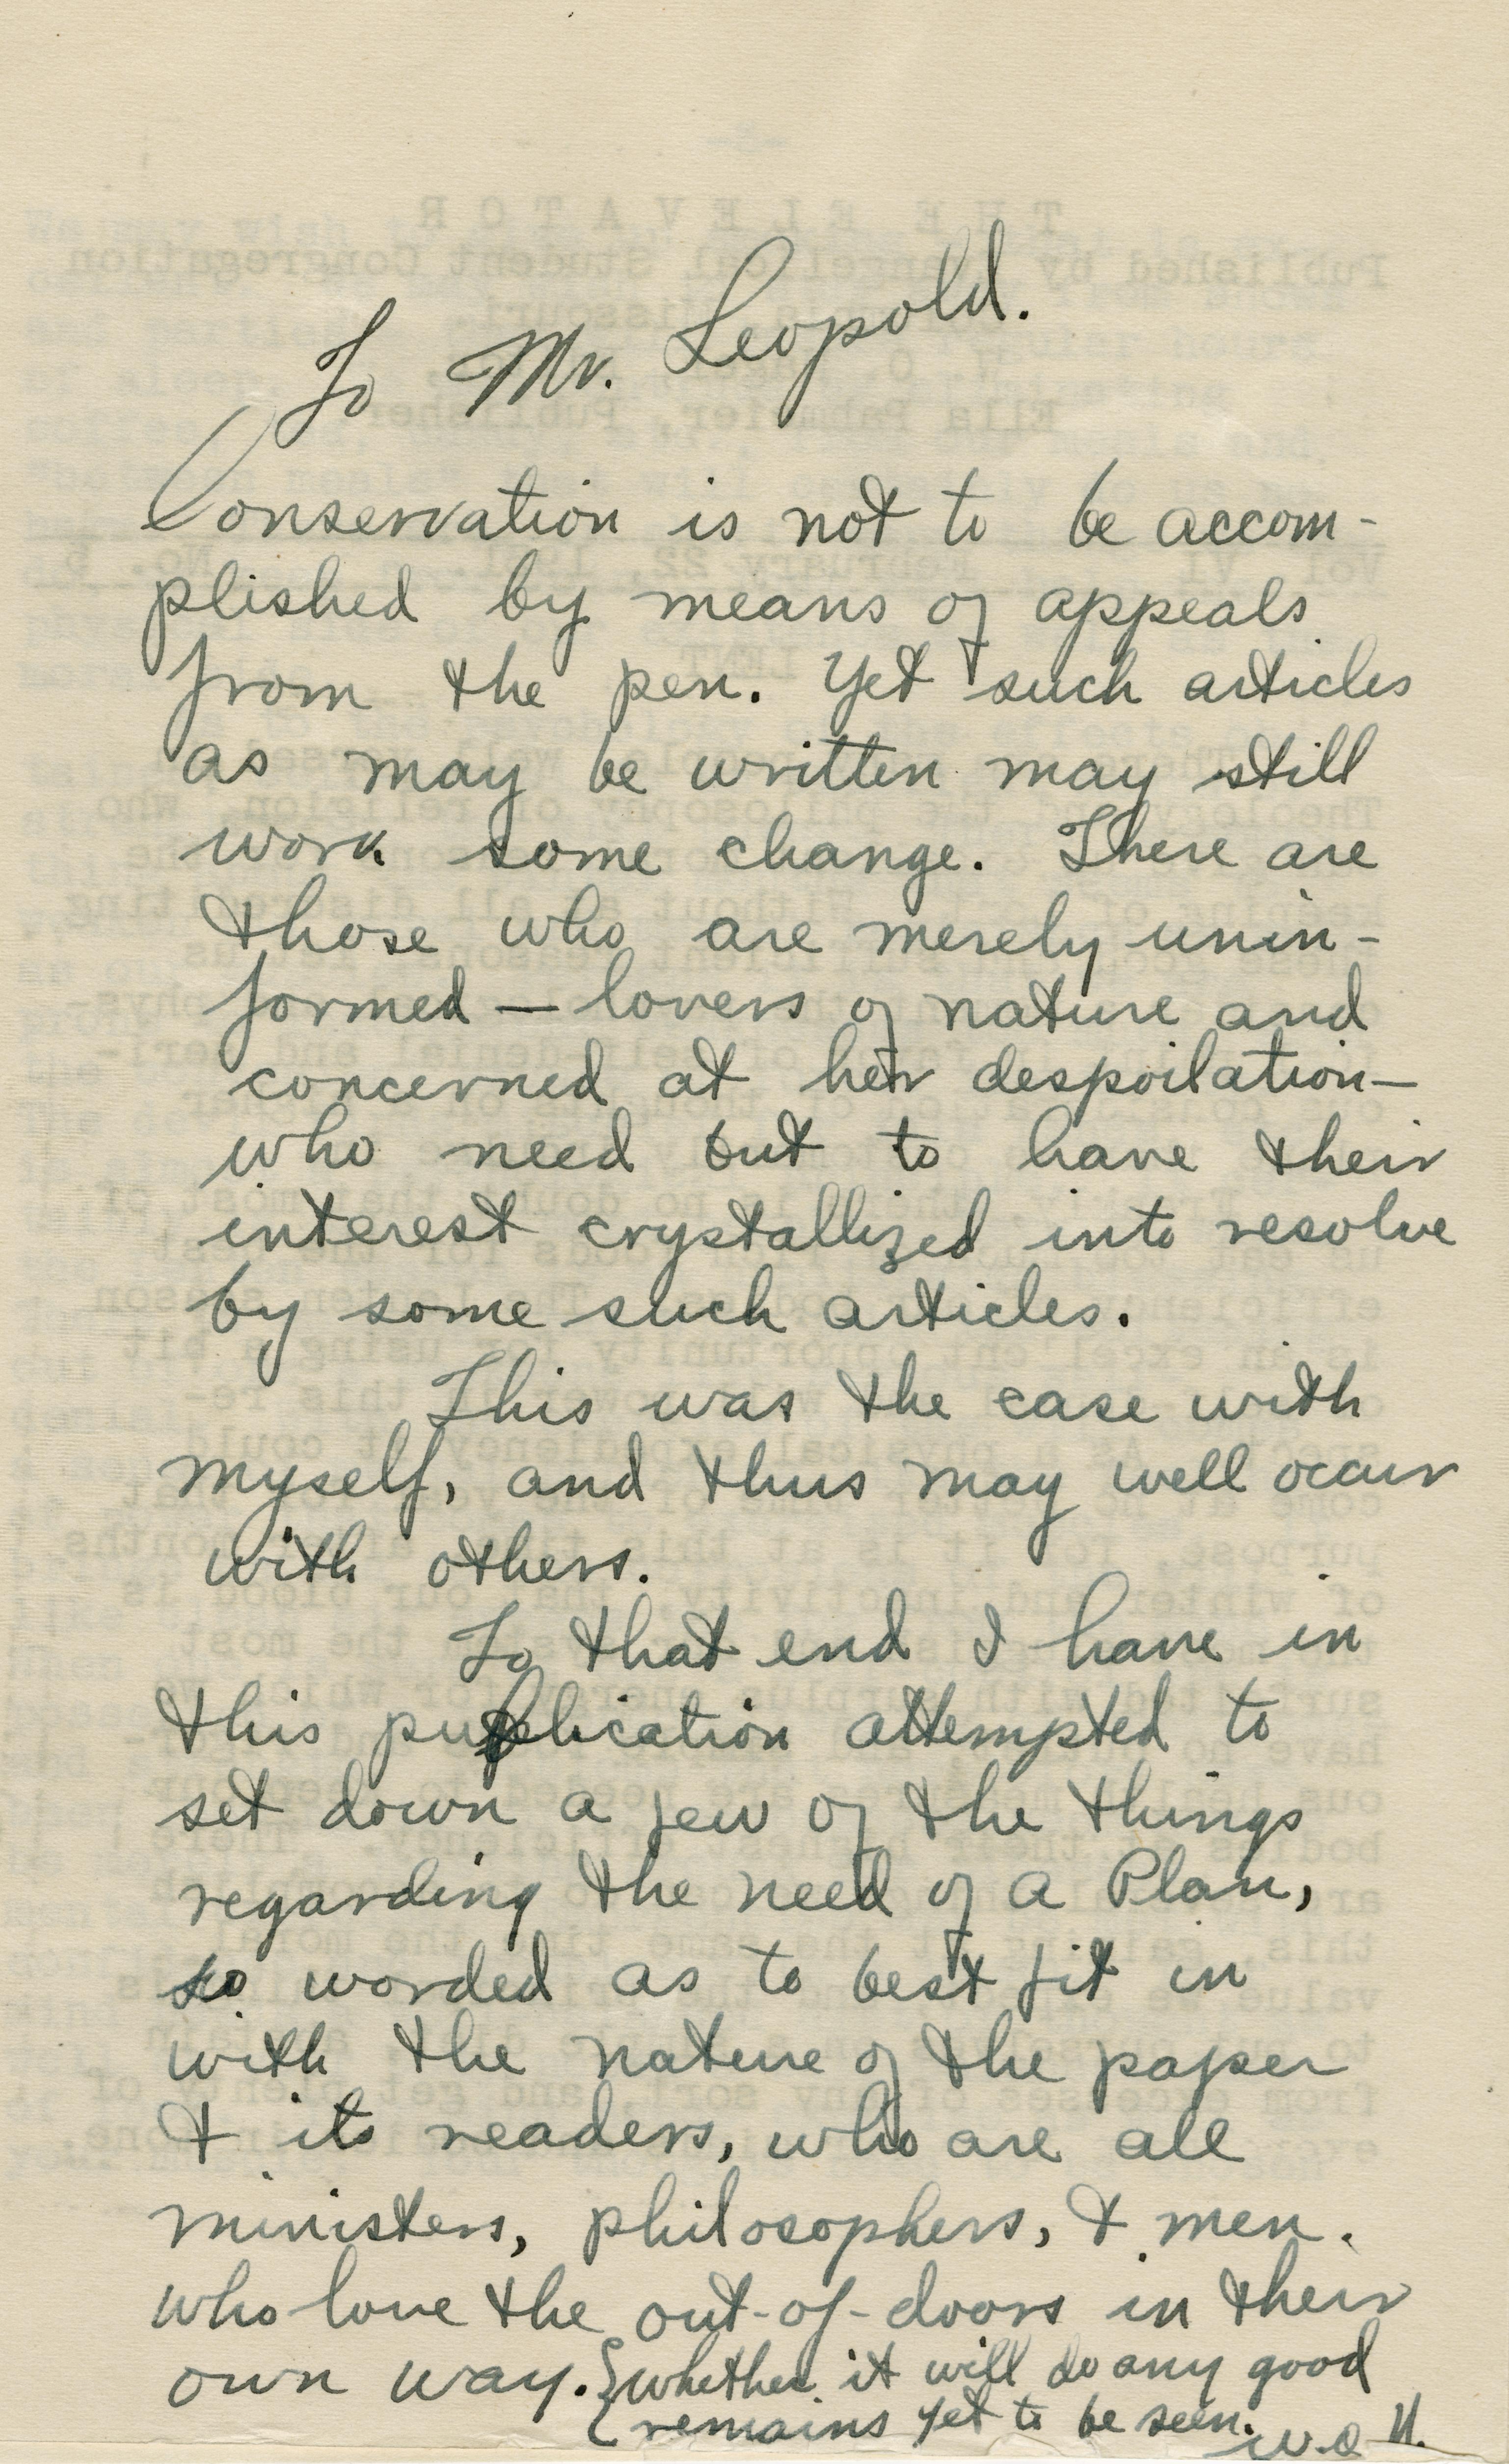 To Mr. Leopold.
Conservation is not to be accom-
plished by means of appeals
from the pen. Yet such articles
as may be written may still
work some change. There are
those who are merely unin-
formed — lovers of nature and
concerned at her despoilation —
who need but to have their
interest crystallized into resolve
by some such articles.
This was the case with
myself, and thus may well occur
with others.
To that end I have in
this publication attempted to
set down a few of the things
regarding the need of a Plan,
so worded as to best fit in
with the nature of the paper
& its readers, who are all
ministers, philosophers, & men
who love the out-of-doors in their
own way. { Whether it will do any good
remains yet to be seen.
THE ELEVATOR
Published by Student Congregation